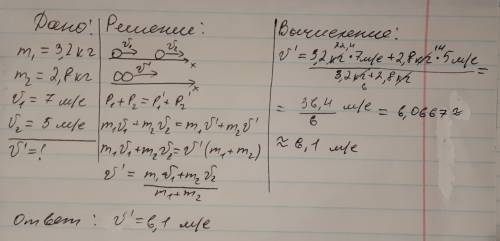 Дано:
m₁ = 3,2 кг
m₂ = 2,8 кг
v₁ = 7 м/с
v₂ = 5 м/с
v' = !
Решение:
v₁ v₂
x
v'
x
P₁ + P₂ = P₁' + P₂'
m₁v₁ + m₂v₂ = m₁v' + m₂v'
m₁v₁ + m₂v₂ = v' (m₁ + m₂)
v' = m₁v₁ + m₂v₂
m₁ + m₂
Вычисление:
22,4 14
v' = 3,2 кг · 7 м/с + 2,8 кг · 5 м/с =
3,2 кг + 2,8 кг
6
= 36,4 м/с = 6,0667 ≈
6
≈ 6,1 м/с
Ответ: v' = 6,1 м/с